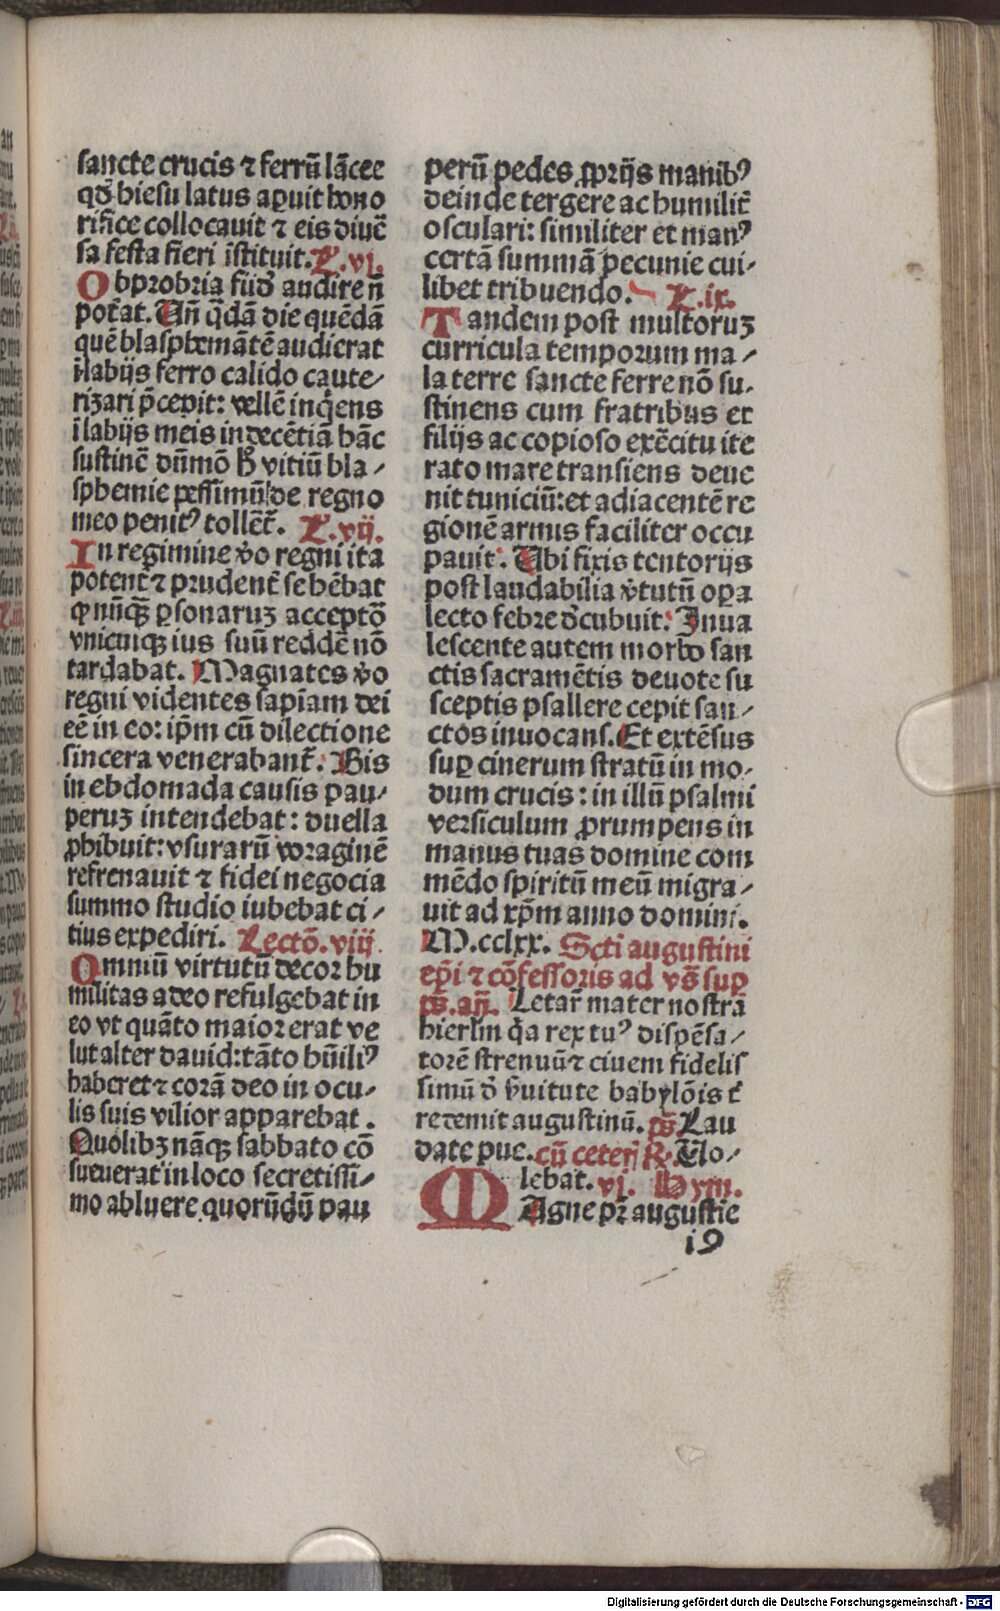 sancte crucis ⁊ ferrũ lãcee
qď hiesu latus aꝑuit hono
rifice collocauit ⁊ eis diuẽ
sa festa fieri ĩstituit. L.vj.
Obprobria fiid̛ audire ñ
poťat. Uñ q̃dã die quẽdã
quẽ blasphemãtẽ audierat
ĩ labijs ferro calido caute⸗
rizari p̃cepit: vellẽ inqͥens
ĩ labijs meis indecẽtiã hãc
sustinẽ dũmõ h̛ vitiũ bla⸗
sphemie pessimũ de regno
meo penitꝰ tollẽt̃. L.vij.
In regimine v̛o regni ita
potent̃ ⁊ prudent̃ se hẽbat
ꝙ nũꝗ̃ ꝑsonaruꝫ acceptõ
vnicuiqꝫ ius suũ reddẽ nõ
tardabat. Magnates v̛o
regni videntes sapĩam dei
eẽ in eo: ip̃m cũ dilectione
sincera venerabant̃. Bis
in ebdomada causis pau⸗
peruꝫ intendebat: duella
ꝓhibuit: vsurarũ voraginẽ
refrenauit ⁊ fidei negocia
summo studio iubebat ci⸗
tius expediri. Lectõ.viij.
Omniũ virtutũ decor hu
militas adeo refulgebat in
eo vt quãto maior erat ve
lut alter dauid: tãto hũiliꝰ
haberet ⁊ corã deo in ocu⸗
lis suis vilior apparebat.
Quolibꝫ nãqꝫ sabbato cõ
sueuerat in loco secretissi⸗
mo abluere quorũdũ pau
perũ pedes ꝓprijs manibꝰ
deinde tergere ac humilit̃
osculari: similiter et manꝰ
certã summã pecunie cui⸗
libet tribuendo. L.ix.
Tandem post multoruꝫ
curricula temporum ma⸗
la terre sancte ferre nõ su⸗
stinens cum fratribus et
filijs ac copioso exẽcitu ite
rato mare transiens deue
nit tuniciũ: et adiacentẽ re
gionẽ armis faciliter occu
pauit: Ubi fixis tentorijs
post laudabilia v̛tutũ oꝑa
lecto febre d̛cubuit: Inua
lescente autem morbo san
ctis sacramẽtis deuote su
sceptis psallere cepit san⸗
ctos inuocans. Et extẽsus
suꝑ cinerum stratũ in mo⸗
dum crucis: in illũ psalmi
versiculum ꝓrumpens in
manus tuas domine com
mẽdo spiritũ meũ migra⸗
uit ad xp̃m anno domini.
M.cclxx. Scti augustini
ep̃i ⁊ cõfessoris ad vs̃ suꝑ
ps̃. añ. Letar̃ mater nostrã
hierlm̃ q̃a rex tuꝰ dispẽsa⸗
torẽ strenuũ ⁊ ciuem fidelis
simũ d̛ s̛uitute babylõis t̃
redemit augustinũ. ps̃ Lau
date pue. cũ ceteri̾ ℟. Uo⸗
lebat. vj. Hym.
MAgne pr̃ augustie
i9
Digitalisierung gefördert durch die Deutsche Forschungsgemeinschaft - DFG